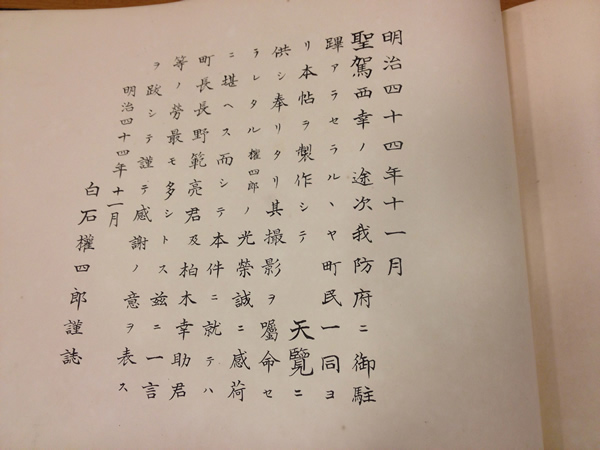 明治四十四年十一月
聖駕西幸ノ途次我防府ニ御駐
蹕アラセラルヽヤ町民一同ヨ
リ本帖ヲ製作シテ　天覽ニ
供シ奉リタリ其撮影ヲ囑命セ
ラレタル權四郎ノ光榮誠ニ感荷
ニ堪ヘス而シテ本件ニ就テハ
町長長野範亮君及柏木幸助君
等ノ勞最モ多シトス玆ニ一言
ヲ跋シテ謹テ感謝ノ意ヲ表ス
明治四十四年十一月
白石權四郎謹誌